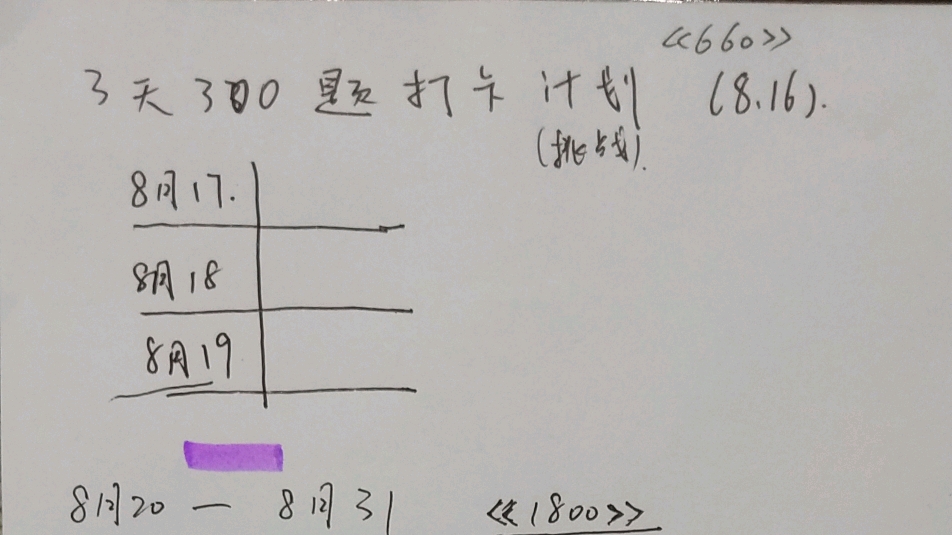 《660》
3天300题打卡计划 (8.16).
(挑战).
8月17.
8月18
8月19
8月20 — 8月31 《1800》